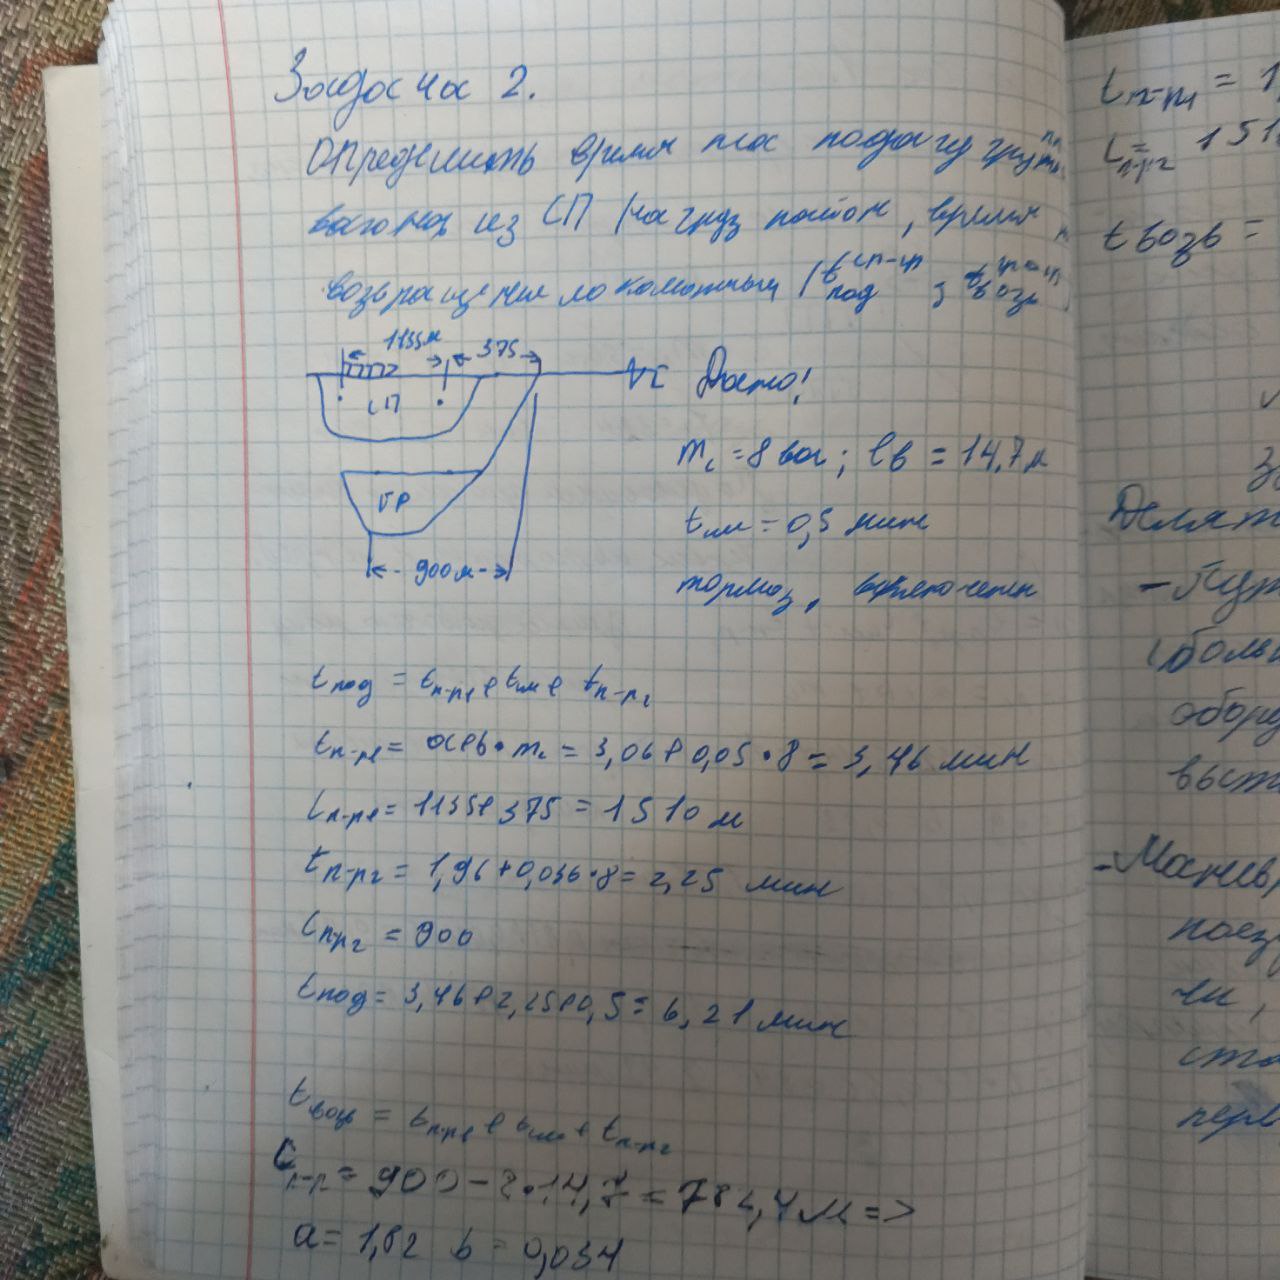 Задача 2.
Определить время на подачу групп
вагонов из СП на груз район, время
возвращения локомотива (t под сп-гр, t возв гр-сп)
1135м 375
СП
ГР
900м
Дано:
mс = 8 ваг; lв = 14,7 м
tм = 0,5 мин
тормоз. включены
tпод = tп-р1 + tм + tп-р2
tп-р1 = a+b·mс = 3,06+0,05·8 = 3,46 мин
Lп-р1 = 1135+375 = 1510 м
tп-р2 = 1,96+0,036·8 = 2,25 мин
Lп-р2 = 900
tпод = 3,46+2,25+0,5 = 6,21 мин
tвозв = tп-р1 + tм + tп-р2
Lп-р = 900-8·14,7 = 782,4 м =>
a = 1,82 b = 0,034
tп-р1 = 1,
Lп-р2 = 151
tвозв =
- Пут
(боль
обору
выст
- Манев
поез
чи,
ста